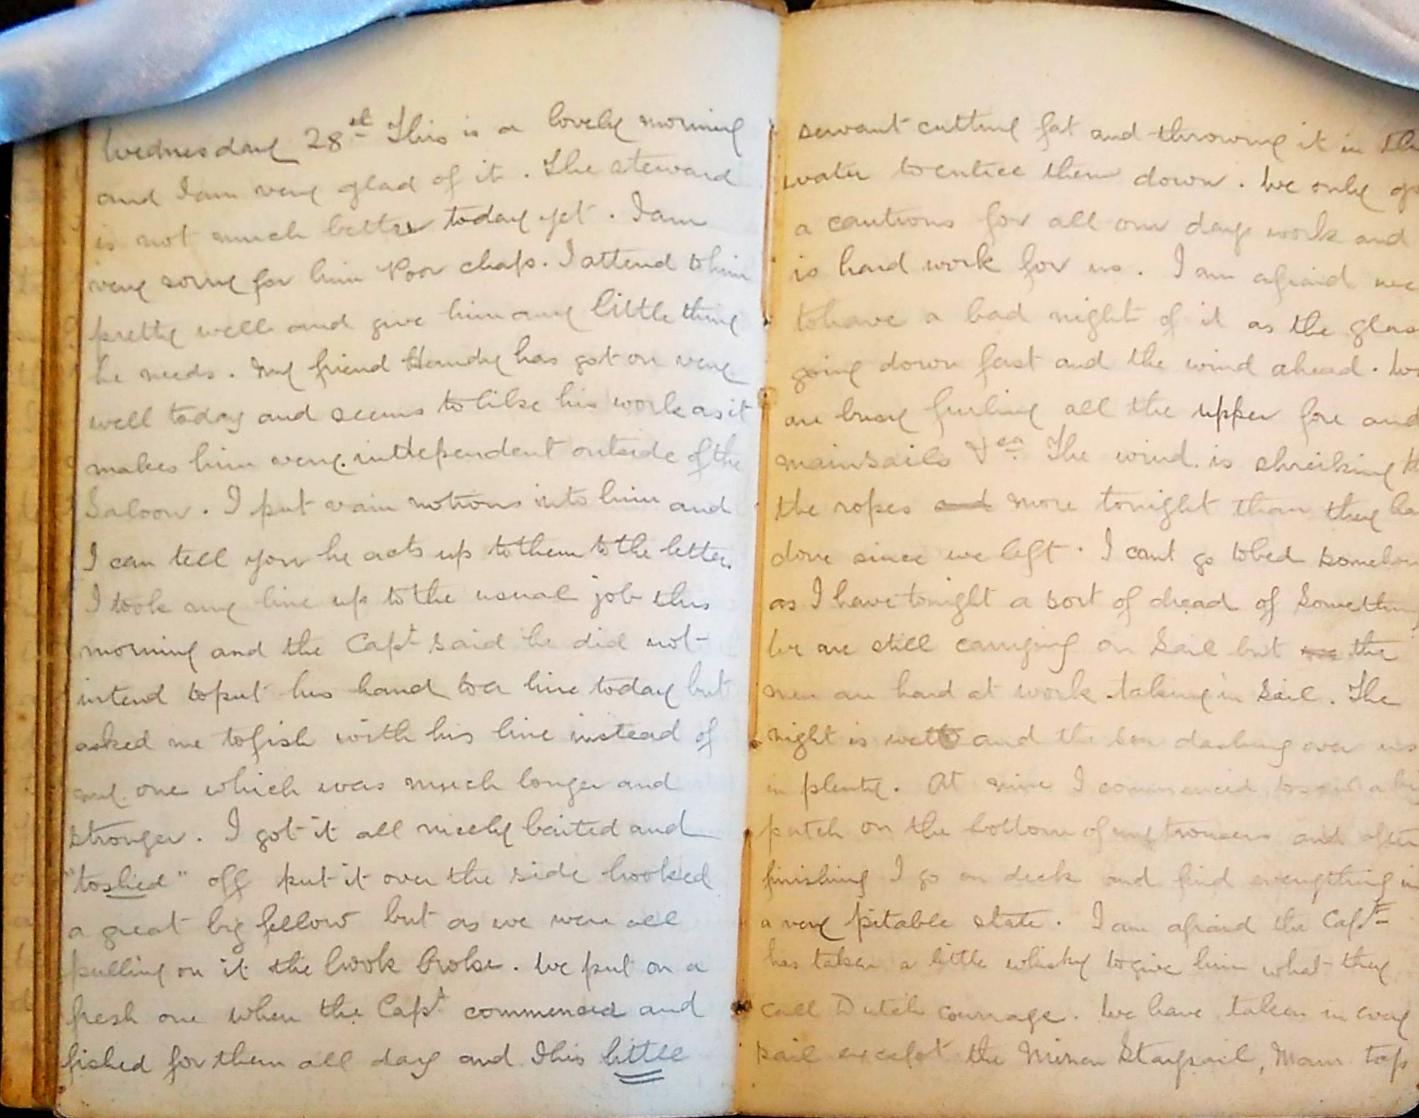 Wednesday 28st This is a lovely morning
and I am very glad of it. The steward
is not much better today yet. I am
very sorry for him Poor chap. I attend to him
pretty well and give him any little thing
he needs. My friend Handly has got on very
well today and seems to like his work as it
makes him very independent outside of the
Saloon. I put vain notions into him and
I can tell you he acts up to them to the letter.
I took my line up to the usual job this
morning and the Capt said he did not
intend to put his hand to a line today but
asked me to fish with his line instead of
my one which was much longer and
stronger. I got it all nicely baited and
"toshed" off put it over the side hooked
a great big fellow but as we were all
pulling on it the hook broke. We put on a
fresh one when the Capt commenced and
fished for them all day and this little
servant cutting fat and throwing it in the
water to entice them down. We only
a cautions for all our days work and
is hard work for us. I am afraid we
to have a bad night of it as the glas
going down fast and the wind ahead. We
are busy furling all the upper fore and
mainsails &ca The wind is shreiking
the ropes and more tonight than they ha
done since we left. I cant go to bed somehow
as I have tonight a sort of dread of Somethin
We are still carrying on Sail but the
men are hard at work taking in Sail. The
night is wett and the sea dashing over us
in plenty. At nine I commenced to a
patch on the bottom of my trousers and after
finishing I go on deck and find everything in
a very pitable state. I am afraid the Capt
has taken a little whisky to give him what they
call Dutch courage. We have taken in every
sail except the Mizen Staysail, Main tops